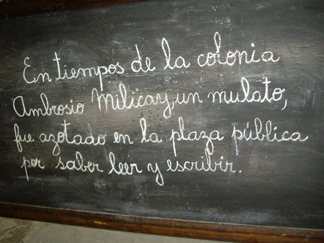 En tiempos de la colonia
Ambrosio Milicay, un mulato,
fue azotado en la plaza pública
por saber leer y escribir.